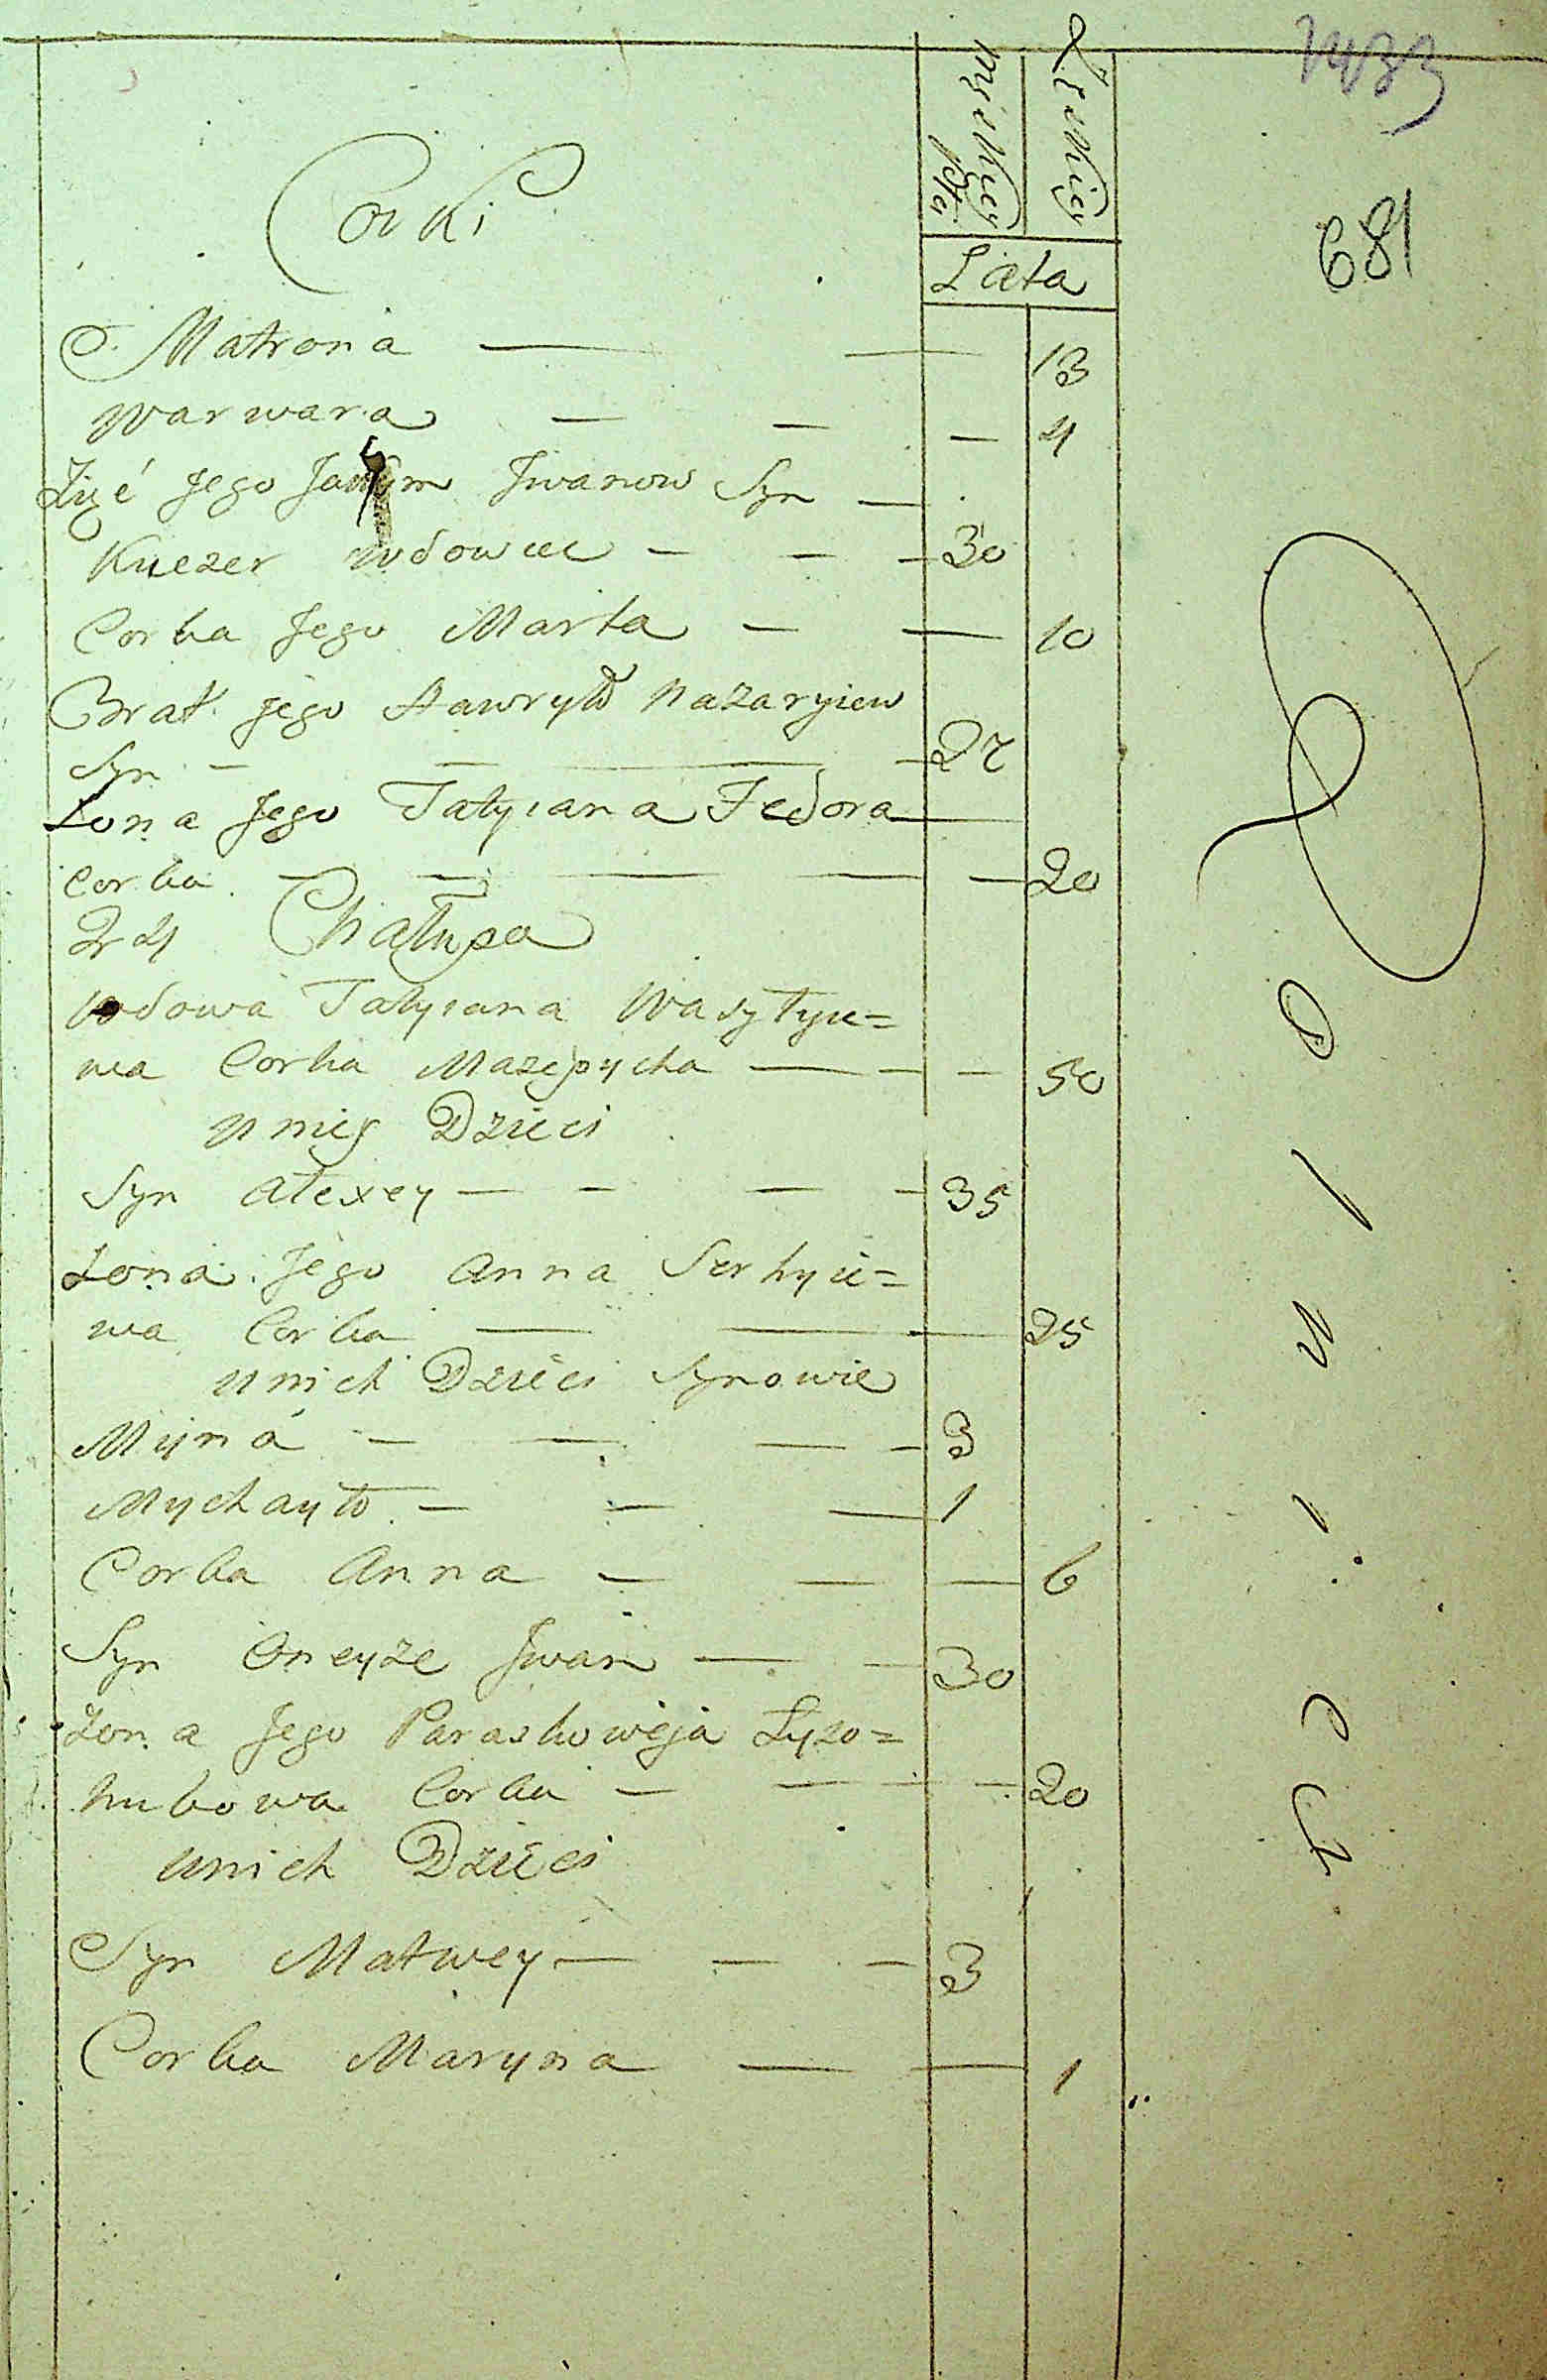 męskiey płci
Żeńskiey
Lata
681
Corki
Matrona — — 13
Warwara — — — 4
Zięć Jego Jakym Jwanow Syn —
Kuczer wdowiec — — — 30
Corka Jego Marta — — 10
Brat Jego Hawryło Nazaryiew
Syn — — — — 27
Żona Jego Tatyiana Fedora
Corka — — — — — 20
24 Chałupa
wdowa Tatyiana Wasylyie=
wa Corka Mazepycha — — — 50
u niey Dzieci
Syn Alexey — — — — 35
Żona Jego Anna Serhyie=
wa Corka — — 25
u nich Dzieci Synowie
Myna — — — — 3
Mychayło — — — 1
Corka Anna — — — 6
Syn Jwan — — 30
Żona Jego Paraskoweja Łyzo=
hubowa Corka — — — — 20
u nich Dzieci
Syn Matwey — — — 3
Corka Maryna — — 1